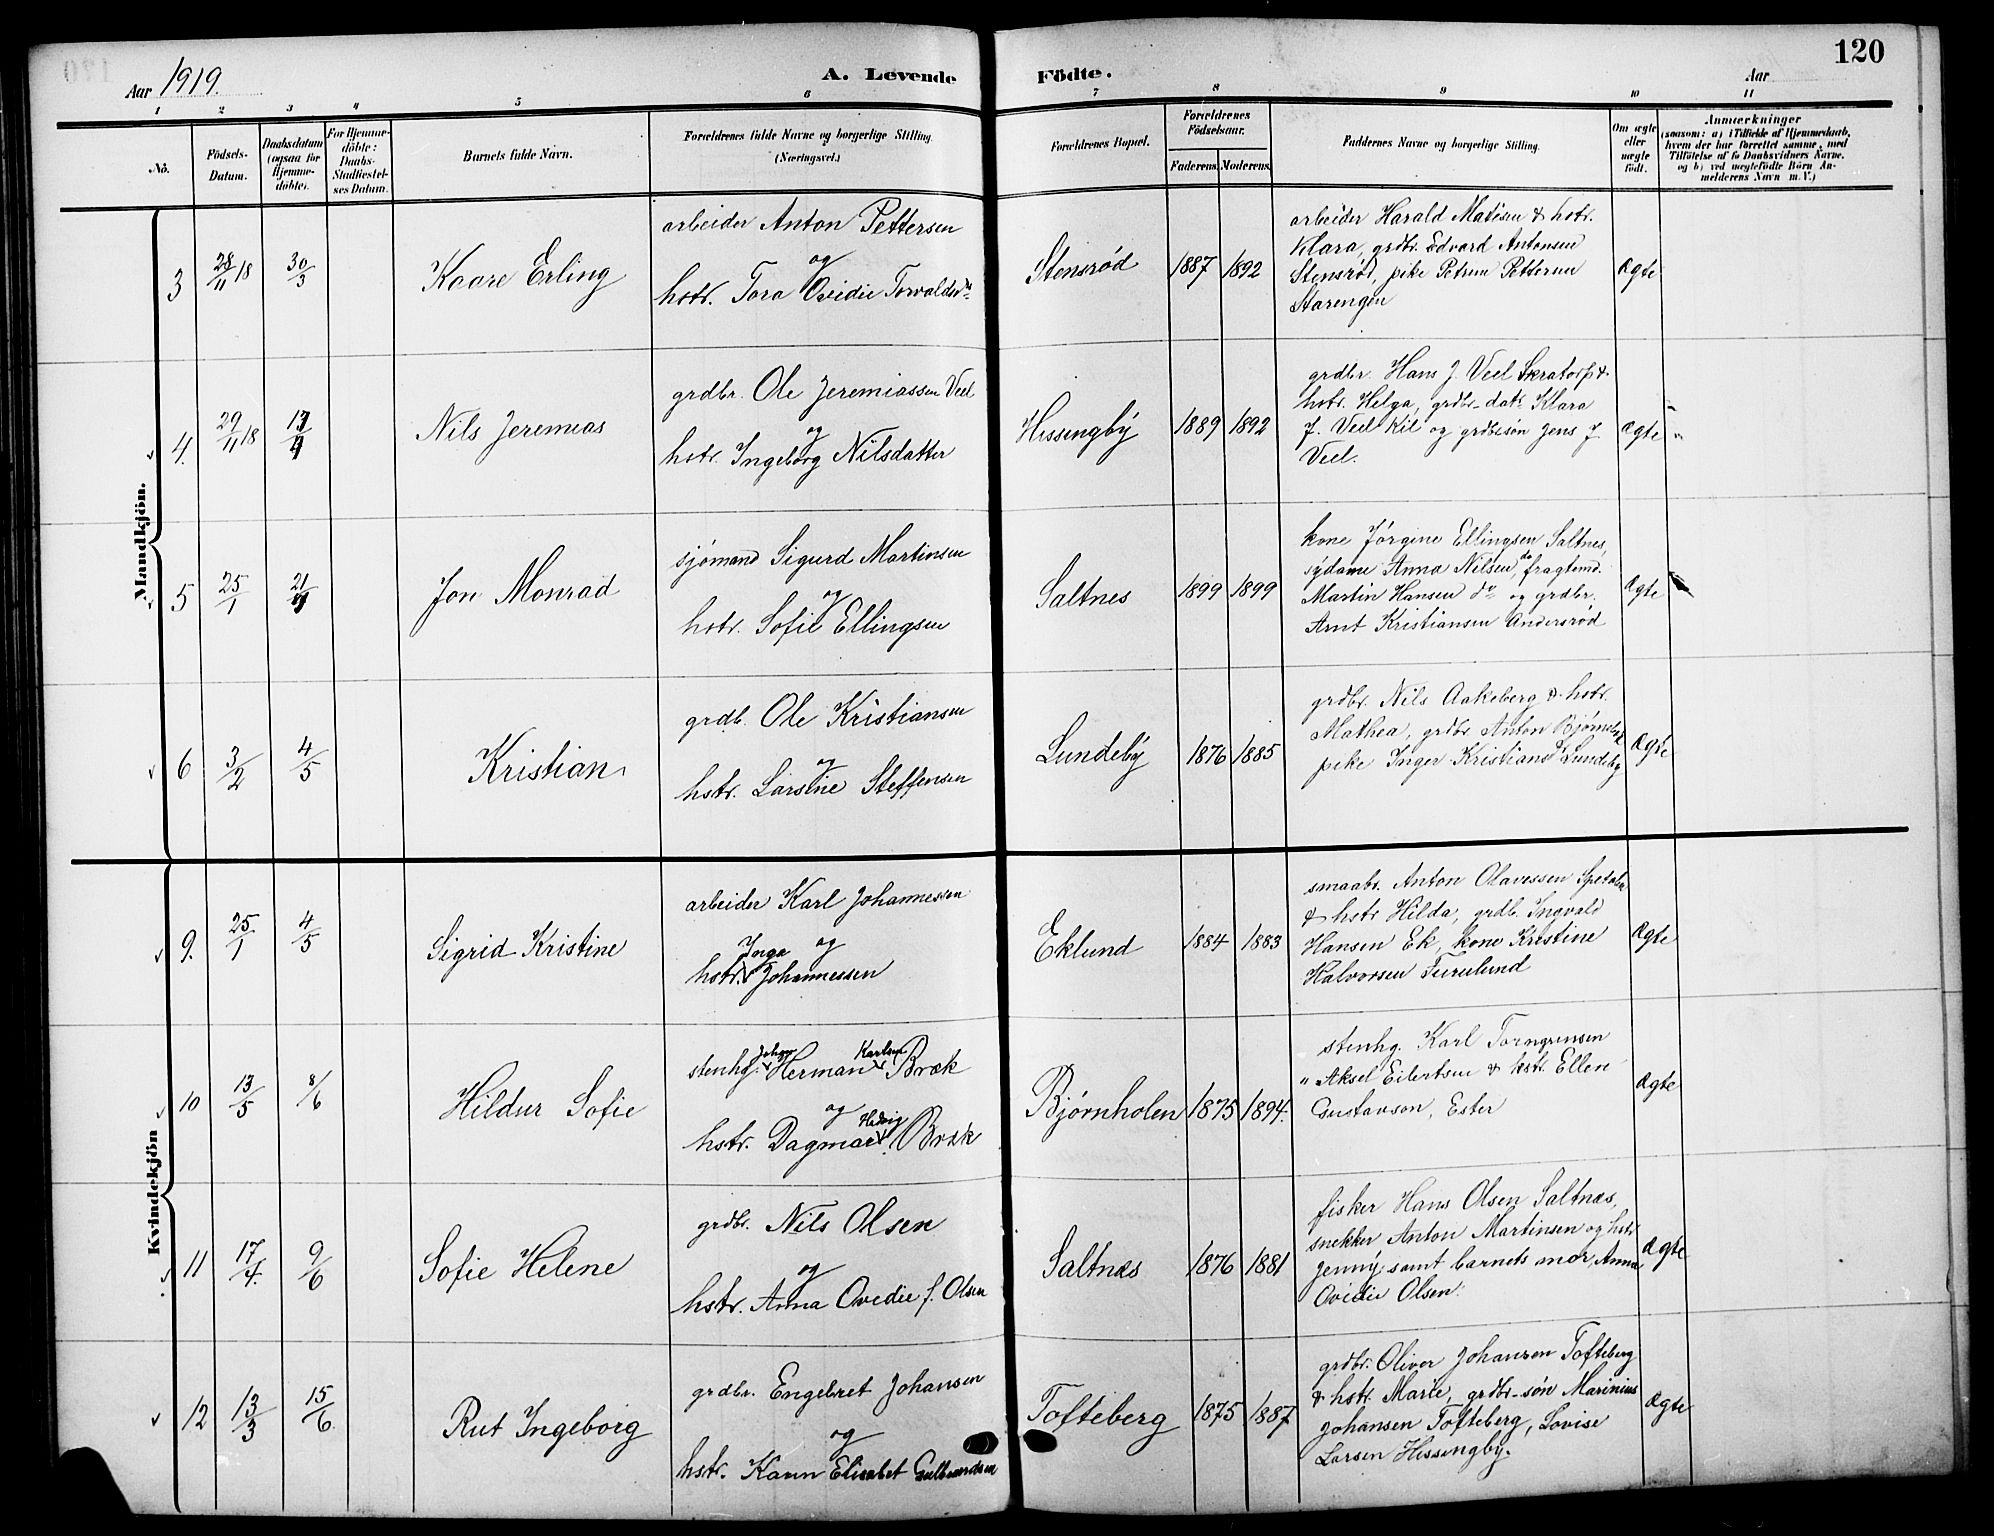 120
Aar 1919.
A. Levende
Födte.
Aar
1 2 3 4 5 6 7 8 9 10 11
Nö.
Födsels-
Datum.
Daabsdatum
(ogsaa for
Hjemme-
döbte).
For Hjemme-
döbte:
Daabs-
Stadfæstel-
ses Datum.
Barnets fulde Navn.
Forældrenes fulde Navne og borgerlige Stilling.
(Næringsvei.)
Forældrenes Bopæl.
Forældrenes
Födselsaar.
Faderens.
Moderens.
Faddernes Navne og borgerlige Stilling.
Om ægte
eller
uægte
födt.
Anmærkninger
(saasom: a) i Tilfælde af Hjemmedaab,
hvem der har forrettet samme, med
Tilföielse af to Daabsvidners Navne.
og b) ved uægtefödte Börn An-
melderens Navn m. V.)
Mandkjön.
3
28/11 18
30/3
Kaare Erling
arbeider Anton Pettersen
og
hstr. Tora Ovidie Torvaldsd.
Stensrød
1887
1892
arbeider Harald Matisen & hstr.
Klara, grdbr. Edvard Antonsen
Stensrød, pike Petrine Pettersen
Starengen
Ægte
4.
29/11 18
Nils Jeremias
grdbr. Ole Jeremiassen Veel
og
hstr. Ingeborg Nilsdatter
Hissingby
1889
1892
grdbr. Hans J. Veel Skratorp &
hstr. Helga, grdbr-datr. Klara
J. Veel Kil og grdbrsøn Jens J.
Veel.
Ægte
5
25/1
21/4
Jon Monrad
sjømand Sigurd Martinsen
og
hstr. Sofie Ellingsen
Saltnes
1899
1899
kone Jørgine Ellingsen Saltnes,
sydame Anna Nilsen do, fragtmd.
Martin Hansen do og grdbr.
Arnt Kristiansen Andersrød
Ægte
6
3/2
4/5
Kristian
grdb. Ole Kristiansen
og
hstr. Larsine Steffensen
Lundeby
1876
1885
grdbr. Nils Aakeberg & hstr.
Mathea, grdbr Anton
pike Inger Kristians Lundeby
Ægte
Kvindekjön
9.
25/1
4/5
Sigrid Kristine
arbeider Karl Johannessen
og
hstr. Inga Johannessen
Eklund
1884
1883
smaabr. Anton Olavessen
& hstr Hilda, grdb. Ingvald
Hansen Ek, kone Kristine
Halvorsen Furulund
Ægte
10
13/5
8/6
Hildur Sofie
stenhg. Johan Herman Karlsen Bræk
og
hstr. Dagmar Hedvig Bræk
Bjørnholen
1875
1894.
stenhg. Karl Torngrensen
" Aksel Eilertsen & hstr. Ellen
Gustavson, Ester
Ægte
11
17/4.
9/6
Sofie Helene
grdbr. Nils Olsen
og
hstr. Anna Ovidie f. Olsen
Saltnæs
1876
1881
fisker Hans Olsen Saltnæs,
snekker Anton Martinsen og hstr
Jenny samt barnets mor, Anna
Ovidie Olsen.
Ægte
12
13/3
15/6
Rut Ingeborg
grdbr. Engebret Johansen
og
hstr. Karin Elisabet Gulbrandsen
Tofteberg
1875
1887
grdbr. Oliver Johansen Tofteberg
& hstr. Marie, grdbr-søn Marinius
Johansen Tofteberg, Lovise
Larsen Hissingby.
Ægte